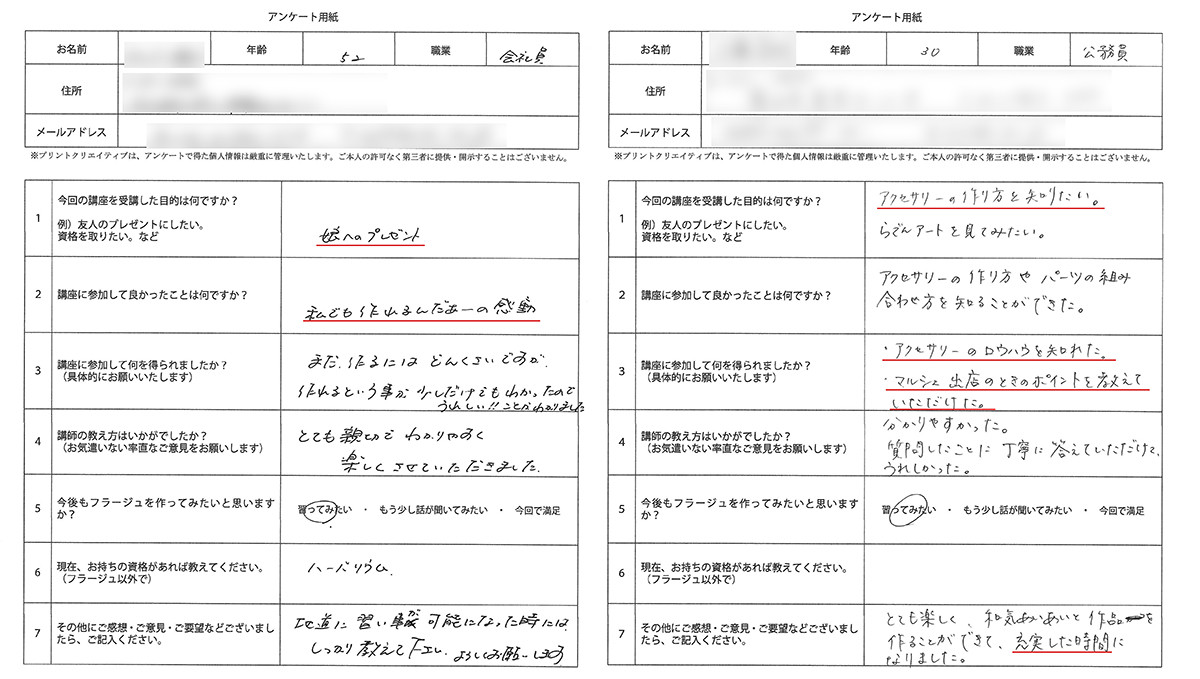 アンケート用紙
お名前
年齢
52
職業
会社員
住所
メールアドレス
※プリントクリエイティブは、アンケートで得た個人情報は厳重に管理いたします。ご本人の許可なく第三者に提供・開示することはございません。
1
今回の講座を受講した目的は何ですか？
例）友人のプレゼントにしたい。
資格を取りたい。など
娘へのプレゼント
2
講座に参加して良かったことは何ですか？
私でも作れるんだあーの感動
3
講座に参加して何を得られましたか？
（具体的にお願いいたします）
まだ、作るには どんくさいですが、
作れるという事が 少しだけでもわかったので
うれしい!! ことがわかりました
4
講師の教え方はいかがでしたか？
（お気遣いない率直なご意見をお願いします）
とても 親切で わかりやすく
楽しく させていただきました。
5
今後もフラージュを作ってみたいと思います
か？
習ってみたい ・ もう少し話が聞いてみたい ・ 今回で満足
6
現在、お持ちの資格があれば教えてください。
（フラージュ以外で）
ハーバリウム、
7
その他にご感想・ご意見・ご要望などございまし
たら、ご記入ください。
地道に 習い事が 可能になった時には、
しっかり 教えて下さい。よろしくお願いします
アンケート用紙
お名前
年齢
30
職業
公務員
住所
メールアドレス
※プリントクリエイティブは、アンケートで得た個人情報は厳重に管理いたします。ご本人の許可なく第三者に提供・開示することはございません。
1
今回の講座を受講した目的は何ですか？
例）友人のプレゼントにしたい。
資格を取りたい。など
アクセサリーの作り方を知りたい。
らでんアートを見てみたい。
2
講座に参加して良かったことは何ですか？
アクセサリーの作り方や パーツの組み
合わせ方を知ることができた。
3
講座に参加して何を得られましたか？
（具体的にお願いいたします）
・アクセサリーのロウハウを知れた。
・マルシェ出店のときのポイントを教えて
いただけた。
4
講師の教え方はいかがでしたか？
（お気遣いない率直なご意見をお願いします）
分かりやすかった。
質問したことに 丁寧に 答えていただけて、
うれしかった。
5
今後もフラージュを作ってみたいと思います
か？
習ってみたい ・ もう少し話が聞いてみたい ・ 今回で満足
6
現在、お持ちの資格があれば教えてください。
（フラージュ以外で）
7
その他にご感想・ご意見・ご要望などございまし
たら、ご記入ください。
とても楽しく、和気あいあいと作品を
作ることができて、充実した時間に
なりました。